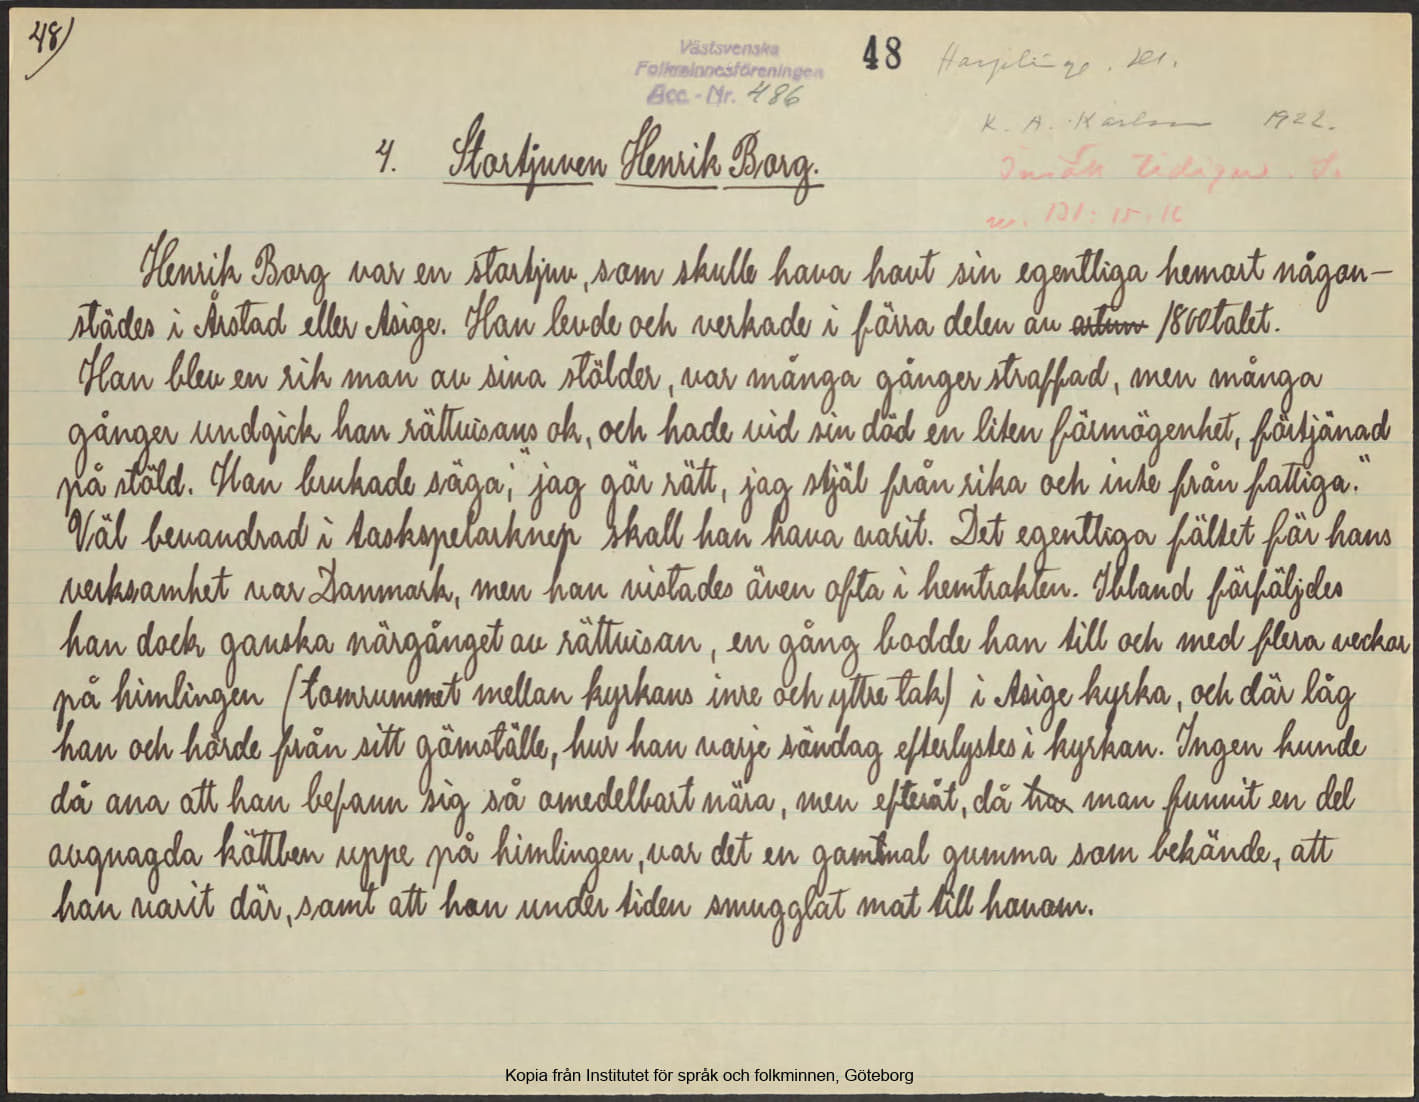 48)
Västsvenska
Folkminnesföreningen
Acc.-Nr. 486
48
Harplinge. Hl.
K. A. Karlsson 1922.
tidigare. S.
4. Stortjuven Henrik Borg.
Henrik Borg var en stortjuv, som skulle hava havt sin egentliga hemort någon-
städes i Årstad eller Asige. Han levde och verkade i förra delen av 1800talet.
Han blev en rik man av sina stölder, var många gånger straffad, men många
gånger undgick han rättvisans ok, och hade vid sin död en liten förmögenhet, förtjänad
på stöld. Han brukade säga; "jag gör rätt, jag stjäl från rika och inte från fattiga."
Väl bevandrad i taskspelarknep skall han hava varit. Det egentliga fältet för hans
verksamhet var Danmark, men han vistades även ofta i hemtrakten. Ibland förföljdes
han dock ganska närgånget av rättvisan, en gång bodde han till och med flera veckor
på himlingen (tomrummet mellan kyrkans inre och yttre tak) i Asige kyrka, och där låg
han och hörde från sitt gömställe, hur han varje söndag efterlystes i kyrkan. Ingen kunde
då ana att han befann sig så omedelbart nära, men efteråt, då man funnit en del
avgnagda köttben uppe på himlingen, var det en gammal gumma som bekände, att
han varit där, samt att hon under tiden smugglat mat till honom.
Kopia från Institutet för språk och folkminnen, Göteborg